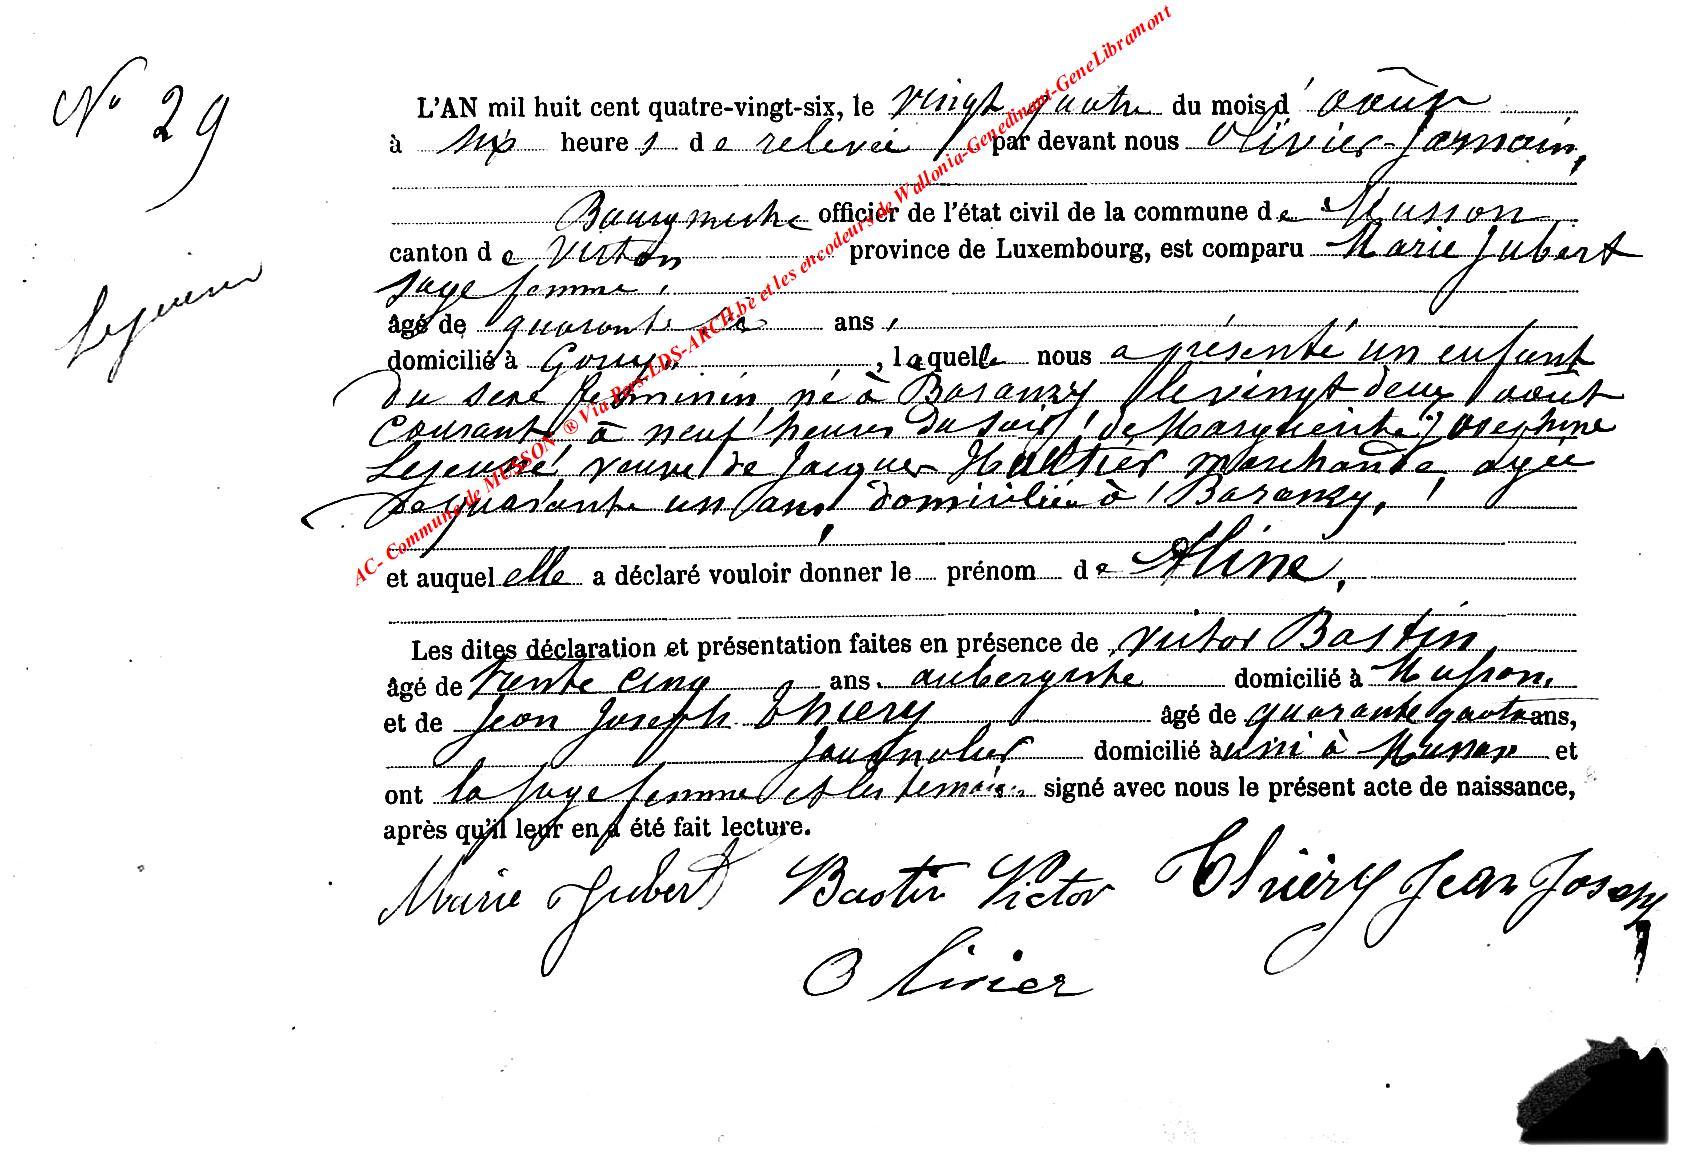 N° 29
Lejeune
L'AN mil huit cent quatre-vingt-six, le vingt quatre du mois d'août
à six heures de relevée, par devant nous Olivier Jamain,
Bourgmestre officier de l'état civil de la commune de Musson
canton de Virton province de Luxembourg, est comparu Marie Jubert
sage femme,
âgé de quarante ans,
domicilié à Gomry, laquelle nous a présenté un enfant
du sexe féminin, né à Baranzy le vingt deux août
courant à neuf heures du soir, de Marguerite Josephine
Lejeune veuve de Jacques marchande, agée
de quarante un ans, domiciliée à Baranzy,
et auquel elle a déclaré vouloir donner le prénom de Aline,
Les dites déclaration et présentation faites en présence de Victor Bastin
âgé de trente cinq ans. aubergiste domicilié à Musson,
et de Jean Joseph Thiery âgé de quarante quatre ans,
Journalier domicilié à aussi à Musson et
ont la sage femme et les témoins signé avec nous le présent acte de naissance,
après qu'il leur en a été fait lecture.
Marie Jubert Bastin Victor Thiery Jean Joseph
Olivier
AC- Commune de MUSSON ® Via Pers-LDS-ARCH.be et les encodeurs de Wallonia-Genedinant-GeneLibramont